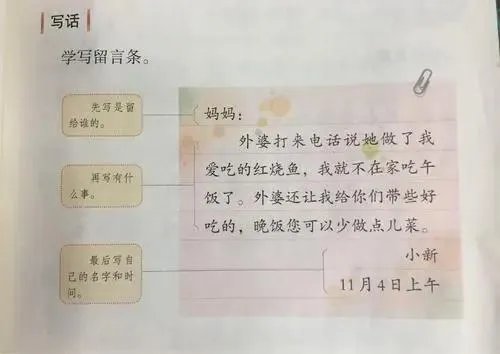 写话
学写留言条。
先写是留
给谁的。
妈妈：
外婆打来电话说她做了我
爱吃的红烧鱼，我就不在家吃午
再写有什
么事。
饭了。外婆还让我给你们带些好
吃的，晚饭您可以少做点儿菜。
最后写自
己的名字和时
间。
小新
11月4日上午